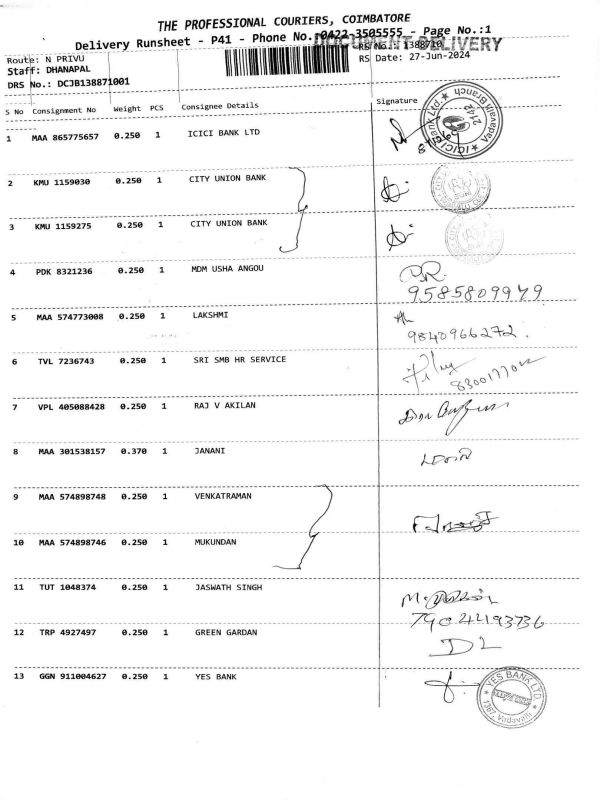 THE PROFESSIONAL COURIERS, COIMBATORE
Delivery Runsheet - P41 - Phone No.:0422-3505555 - Page No.:1
DOCUMENT DELIVERY
Route: N PRIVU
RS No.: 1388710
Staff: DHANAPAL
RS Date: 27-Jun-2024
DRS No.: DCJB138871001
S No Consignment No Weight PCS Consignee Details Signature
1 MAA 865775657 0.250 1 ICICI BANK LTD
ICICI Bank Vadavalli Branch 2142
2 KMU 1159030 0.250 1 CITY UNION BANK
3 KMU 1159275 0.250 1 CITY UNION BANK
4 PDK 8321236 0.250 1 MDM USHA ANGOU
P.R.
9585809979
5 MAA 574773008 0.250 1 LAKSHMI
9840966272.
6 TVL 7236743 0.250 1 SRI SMB HR SERVICE
7 VPL 405088428 0.250 1 RAJ V AKILAN
8 MAA 301538157 0.370 1 JANANI
9 MAA 574898748 0.250 1 VENKATRAMAN
10 MAA 574898746 0.250 1 MUKUNDAN
11 TUT 1048374 0.250 1 JASWATH SINGH
12 TRP 4927497 0.250 1 GREEN GARDAN
DL
13 GGN 911004627 0.250 1 YES BANK
YES BANK LTD. 1367, Vadavalli